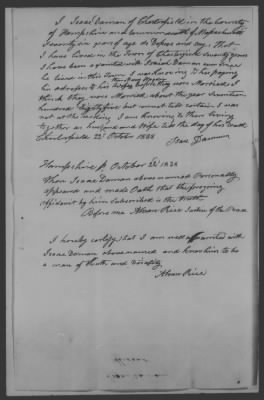 I Isaac Damon of Chesterfield in the County
of Hampshire and Commonwealth of Massachusetts
Seventy six years of age do Depose and say, that
I have lived in the Town of Chesterfield Seventy years
I have been acquainted with Isaiah Damon ever since
he lived in this Town I was knowing to his paying
his adresses to his before they were Married, I
think they were Married about the year Seventeen
hundred Eighty five but cannot tell certain I was
not at the wedding. I am knowing to them living
together as husband and Wife till the day of his Death
Chesterfield 22d October 1838
Isaac Damon
Hampshire ss October 22d 1838
Then Isaac Damon above named Personally
appeared and made Oath that the foregoing
affidavit by him Subscribed is the truth
Before me Alvan Rice Justice of the Peace
I hereby certify that I am well acquainted with
Isaac Damon abovenamed and know him to be
a man of truth and veracity
Alvan Rice